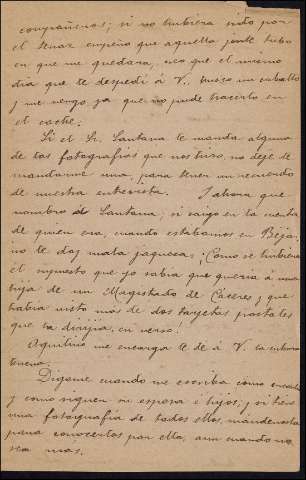 compañeros; si no hubiera sido por
el tenaz empeño que aquella gente tubo
en que me quedara, creo que el mismo
día que te despedí á V. busco un caballo
y me vengo ya que no pude hacerlo en
el coche.
Si el Sr. Santana te manda alguna
de las fotografias que nos hizo, no deje de
mandarme una, para tener un recuerdo
de nuestra entrevista. Y ahora que
nombro á Santana; si caigo en la cuenta
de quien era, cuando estabamos en Béjar,
no te doy mala jaqueca; ¡Como se hubiera
el supuesto que yo sabia que queria á una
hija de un Magistrado de Cáceres y que
habia visto mas de dos tarjetas postales
que la dirijia, en verso!
Aquilino me encarga te dé á V. la enhora
buena.
Digame cuando me escriba como encontró
y como siguen su esposa é hijos; y si tiene
una fotografia de todos ellos, mandemela
para conocerlos por ella, aun cuando no
sea mas.